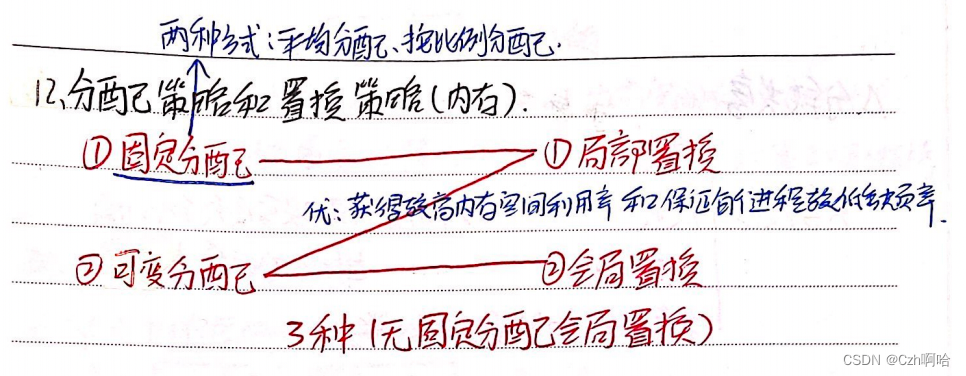 两种方式:平均分配、按比例分配.
12、分配策略和置换策略(内存).
①固定分配 ①局部置换
优:获得较高内存空间利用率和保证每个进程较低缺页率.
②可变分配 ②全局置换
3种(无固定分配全局置换)
CSDN @Czh啊哈